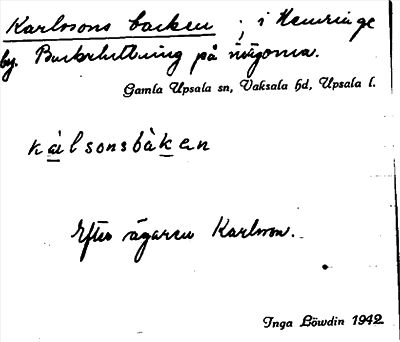 Karlssons backen ; i Hemringe
by. Backsluttning på ägorna.
Gamla Upsala sn, Vaksala hd, Upsala l.
kálsonsbàken
Efter ägaren Karlsson.
Inga Löwdin 1942